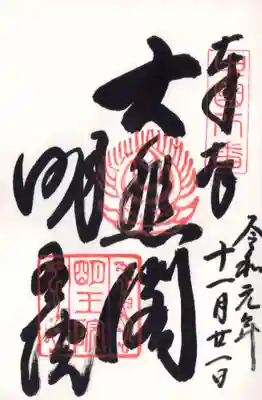 奉拝
大悲閣
明王院
令和元年
十一月廿一日
明王院